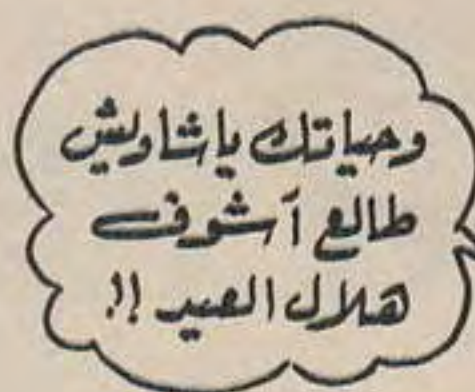 وحياتك ياشاويش
طالع أشوف
هلال العيد !!